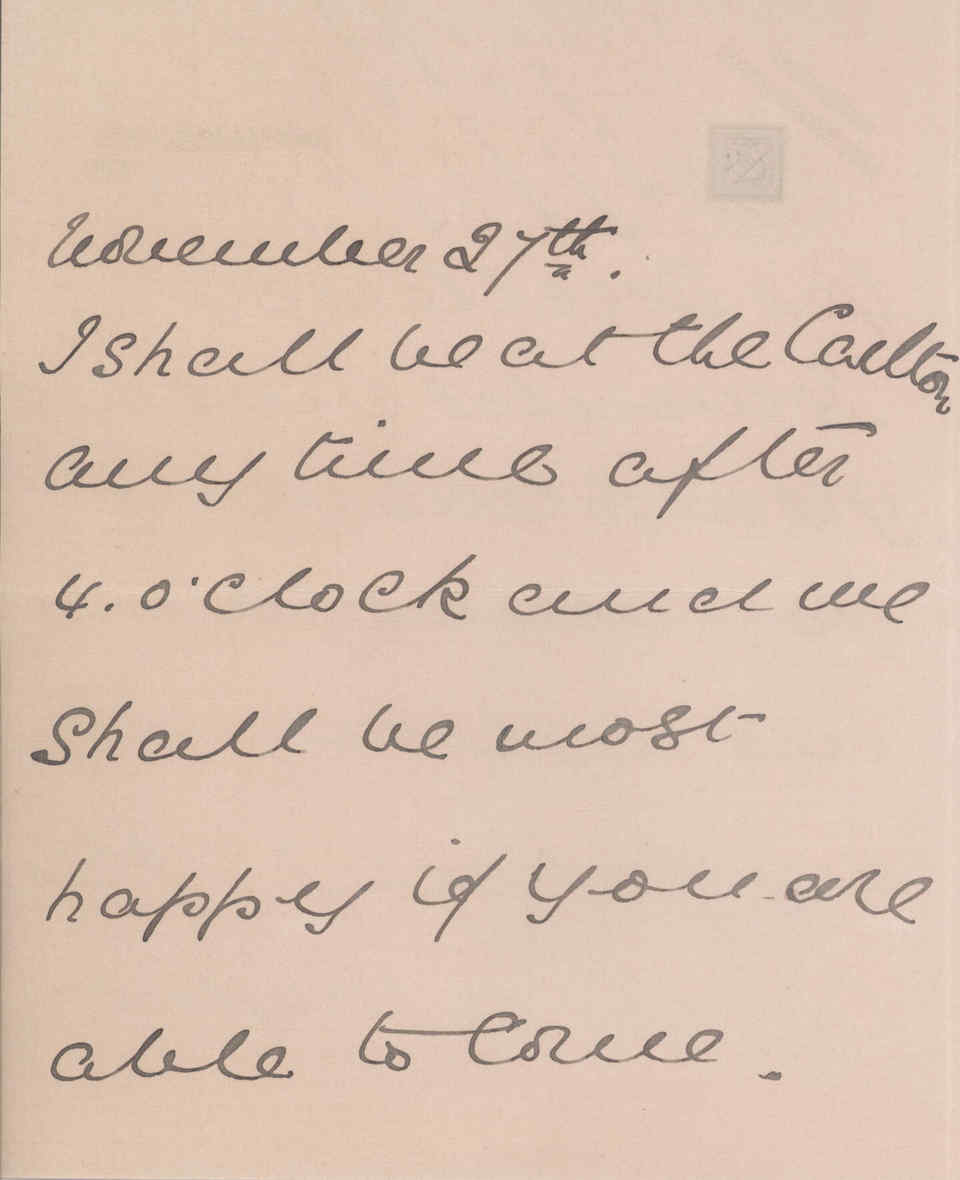 November 27th.
I shall be at the Carlton
any time after
4. o'clock and we
shall be most
happy if you are
able to come.